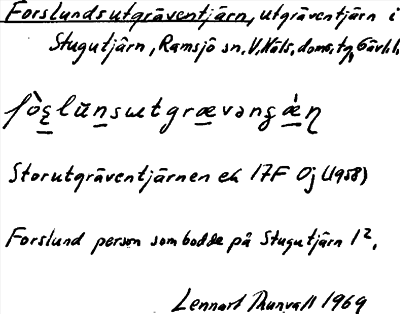 Forslundsutgräventjärn, utgräventjärn i
Stugutjärn, Ramsjö sn. V. Häls. doms. tg, Gävlebl.
Storutgräventjärnen ek 17F 0j (1958)
Forslund person som bodde på Stugutjärn 1².
Lennart Thunvall 1969